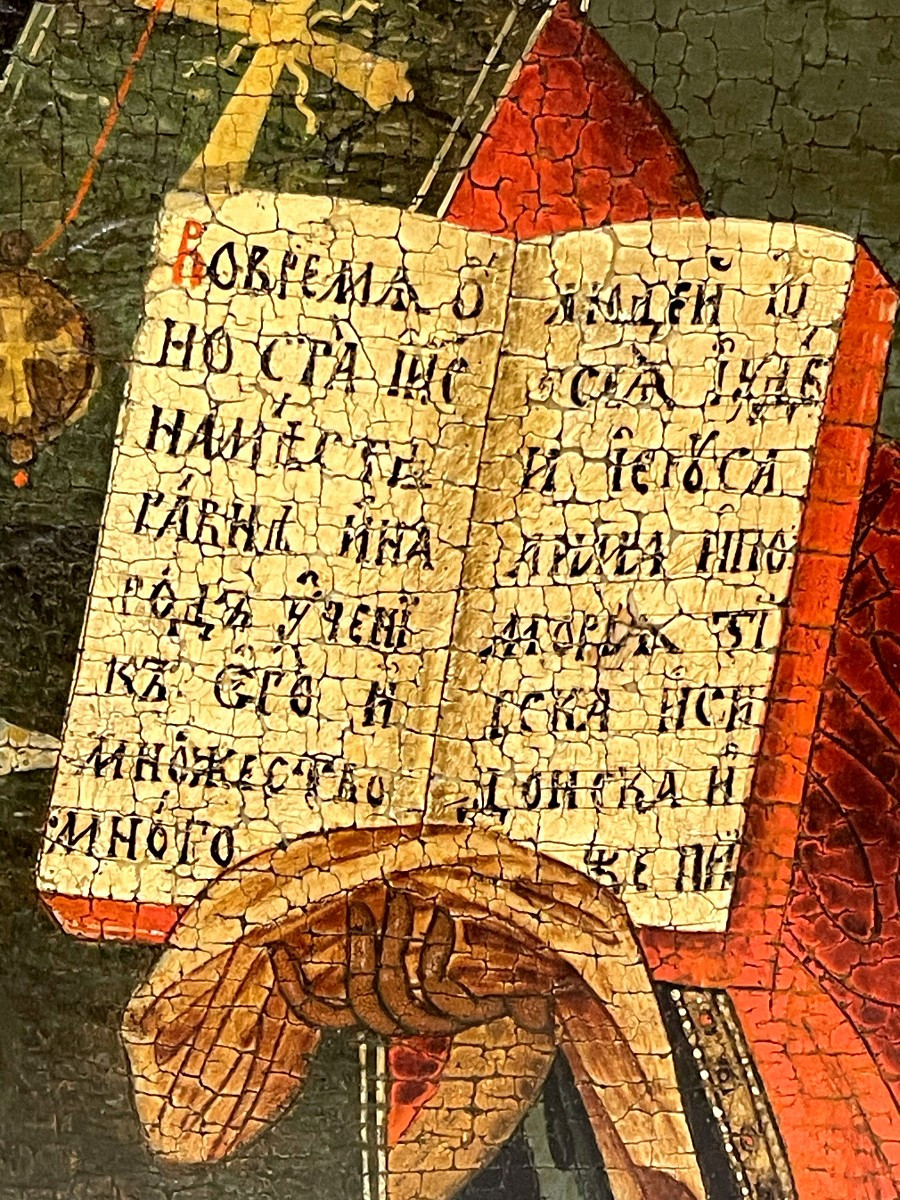 Вовремѧ ѻ́
но ста̀ ии҃с
намѣ́сте
ра́внѣ и҆на
ро́дъ ᲂу҆ченї
къ є҆гѡ̀ и҆
мно́жество
мно́го
людей ѿ
всеѧ̀ і҆ꙋде́
и҆ і҆єрꙋса
лима и҆по
морїѧ ти
рска и҆си
донска и҆
же прї